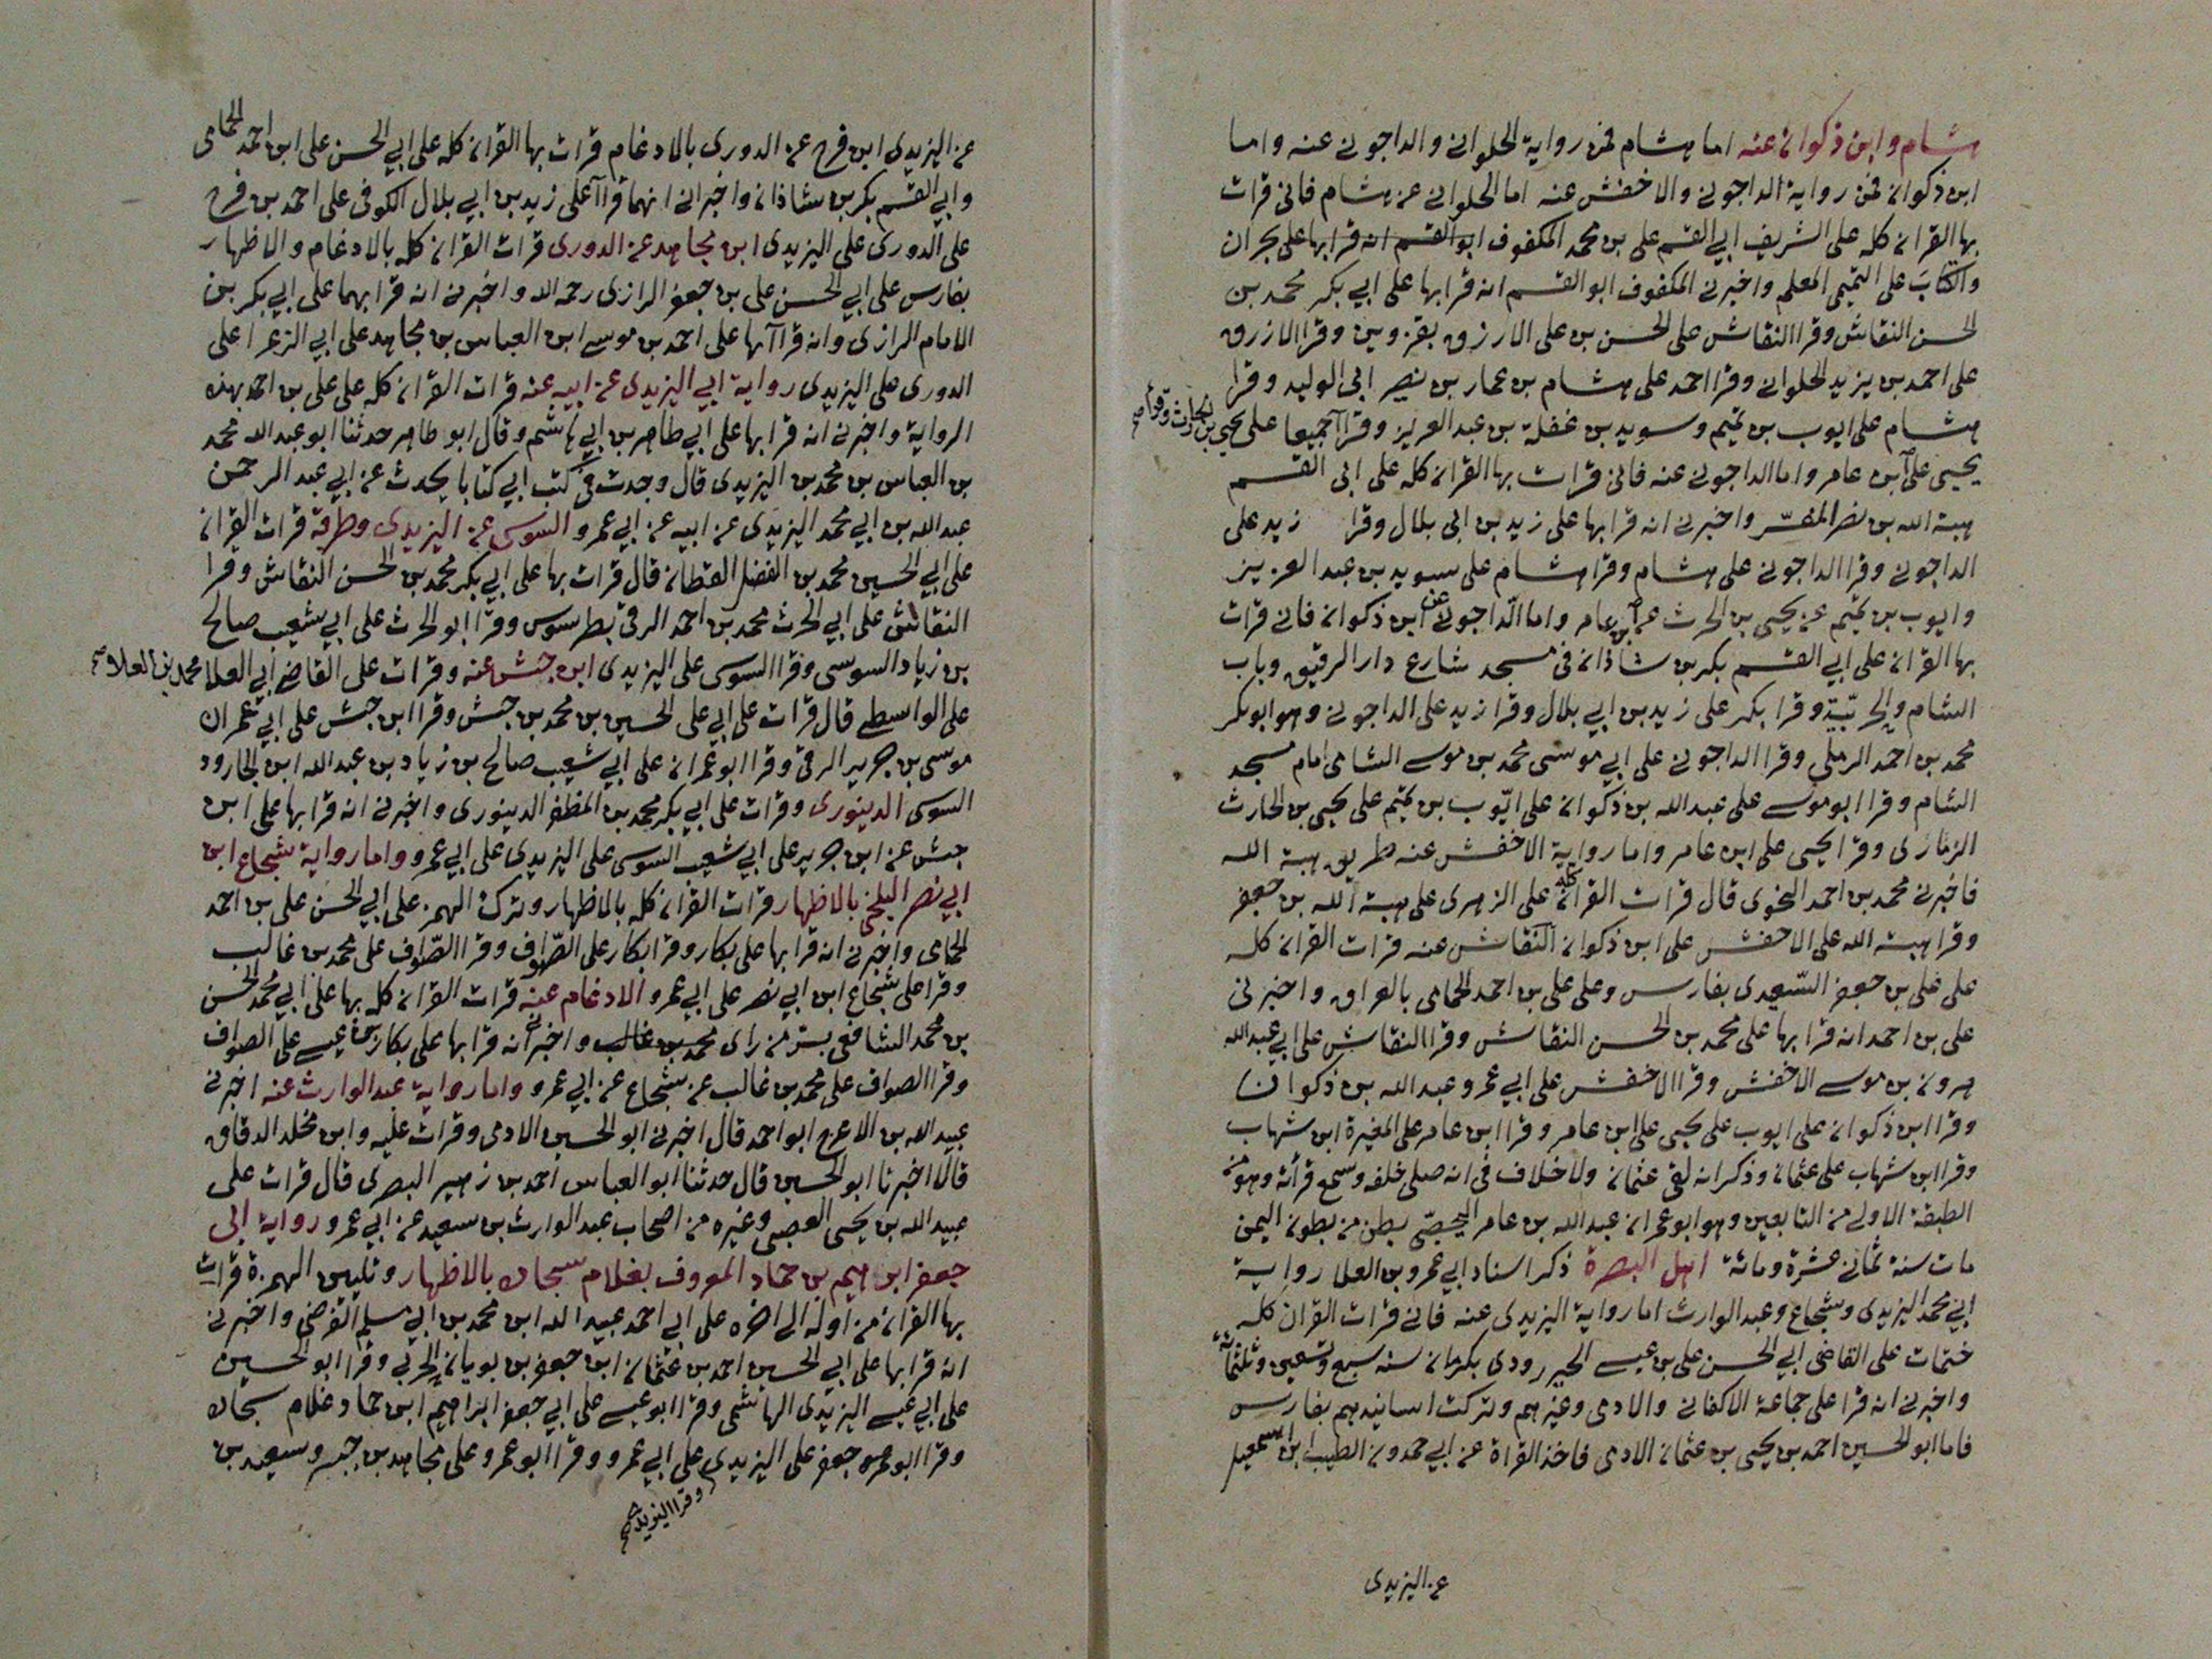 هشام وابن ذكوان عنه اما هشام فمن رواية الحلواني والداجوني عنه واما
ابن ذكوان فمن رواية الداجوني والاخفش عنه اما الحلواني عن هشام فاني قرات
بها القران كله على الشريف ابي القسم علي بن محمد المكفوف ابو القسم انه قرا بها على بحران
والكتاب على التميمي المعلم واخبرني المكفوف ابو القسم انه قرا بها على ابي بكر محمد بن
الحسن النقاش وقرا النقاش على الحسن بن علي الازرق بقزوين وقرا الازرق
على احمد بن يزيد الحلواني وقرا احمد على هشام بن عمار بن نصر ابي الوليد وقرا
هشام على ايوب بن تميم وسويد بن غفلة بن عبد العزيز وقراا جميعا على يحيى بن الحارث وقرا صح
يحيى على ابن عامر واما الداجوني عنه فاني قرات بها القران كله على ابي القسم
هبة الله بن نصر المفسّر واخبرني انه قرا بها على زيد بن ابي بلال وقرا زيد على
الداجوني وقرا الداجوني على هشام وقرا هشام على سويد بن عبد العزيز
وايوب بن تميم عن يحيى بن الحرث عن ابن عامر واما الداجوني عن ابن ذكوان فاني قرات
بها القران على ابي القسم بكر بن شاذان في مسجد شارع دار الرقيق وباب
الشام والحربيّة وقرا بكر على زيد بن ابي بلال وقرا زيد على الداجوني وهو ابو بكر
محمد بن احمد الرملي وقرا الداجوني على ابي موسى محمد بن موسى الشامي امام مسجد
الشام وقرا ابو موسى على عبد الله بن ذكوان على ايّوب بن تميم على يحيى بن الحارث
الذماري وقرا يحيى على ابن عامر واما رواية الاخفش عنه طريق هبة الله
فاخبرني محمد بن احمد النحوي قال قرات القران كله على الزهري على هبة الله بن جعفر
وقرا هبة الله على الاخفش على ابن ذكوان النقاش عنه قرات القران كله
على علي بن جعفر السّعيدي بفارس وعلى علي بن احمد الحمامي بالعراق واخبرني
علي بن احمد انه قرا بها على محمد بن الحسن النقاش وقرا النقاش على ابي عبد الله
هرون بن موسى الاخفش وقرا الاخفش على ابي عمرو عبد الله بن ذكوان
وقرا ابن ذكوان على ايوب على يحيى على ابن عامر وقرا ابن عامر على المغيرة ابن شهاب
وقرا ابن شهاب على عثمان وذكر انه لقي عثمان ولا خلاف في انه صلى خلفه وسمع قرأته وهو من
الطبقة الاولى من التابعين وهو ابو عمران عبد الله بن عامر اليحصبي بطن من بطون اليمن
مات سنة ثماني عشرة ومائة اهل البصرة ذكر اسناد ابي عمرو بن العلا رواية
ابي محمد اليزيدي وشجاع وعبد الوارث اما رواية اليزيدي عنه فاني قرات القران كله
ختمات على القاضي ابي الحسن علي بن عيسى الجيررودي بكرمان سنه سبع وتسعين وثلثمائة
واخبرني انه قرا على جماعة الاكفاني والادمي وغيرهم وتركت اسانيدهم بفارس
فاما ابو الحسين احمد بن يحيى بن عثمان الادمي فاخذ القراة عن ابي حمدون الطيب ابن اسمعيل
عن اليزيدي
عن اليزيدي ابن فرح عن الدوري بالادغام قرات بها القران كله على ابي الحسن علي ابن احمد الحمامي
وابي القسم بكر بن شاذان واخبراني انهما قراا على زيد بن ابي بلال الكوفي على احمد بن فرح
على الدوري على اليزيدي ابن مجاهد عن الدوري قرات القران كله بالادغام والاظهار
بفارس على ابي الحسن علي بن جعفر الرازي رحمه الله واخبرني انه قرا بهما على ابي بكر بن
الامام الرازي وانه قراا بها على احمد بن موسى ابن العباس بن مجاهد على ابي الزعرا على
الدوري على اليزيدي رواية ابي اليزيدي عن ابيه عنه قرات القران كله على علي بن احمد بهذه
الرواية واخبرني انه قرا بها على ابي طاهر بن ابي هاشم وقال ابو طاهر حدثنا ابو عبد الله محمد
بن العباس بن محمد بن اليزيدي قال وجدت في كتب ابي كتابا يحدث عن ابي عبد الرحمن
عبد الله بن ابي محمد اليزيدي عن ابيه عن ابي عمرو السوسي عن اليزيدي وطرقه قرات القران
على ابي الحسين محمد بن الفضل القطان قال قرات بها على ابي بكر محمد بن الحسن النقاش وقرا
النقاش على ابي الحرث محمد بن احمد الرقي بطرسوس وقرا ابو الحرث على ابي شعيب صالح
بن زياد السوسي وقرا السوسي على اليزيدي ابن حبش عنه وقرات على القاضي ابي العلا محمد بن العلا صح
على الواسطي قال قرات على ابي علي الحسين بن محمد بن حبش وقرا ابن حبش على ابي عمران
موسى بن جرير الرقي وقرا ابو عمران على ابي شعيب صالح بن زياد بن عبد الله ابن الجارود
السوسي الدينوري وقرات على ابي بكر محمد بن المظفر الدينوري واخبرني انه قرا بها على ابن
حبش عن ابن جرير على ابي شعيب السوسي على اليزيدي على ابي عمرو واما رواية شجاع ابن
ابي نصر البلخي بالاظهار قرات القران كله بالاظهار وترك الهمز على ابي الحسن علي بن احمد
الحمامي واخبرني انه قرا بها على بكار وقرا بكار على الصّواف وقرا الصّواف على محمد بن غالب
وقرا على شجاع ابن ابي نصر على ابي عمرو الادغام عنه قرات القران كله بها على ابي محمد الحسن
بن محمد الشافعي بسرّ من راى محمد بن غالب واخبرني انه قرا بها على بكار بن عيسى على الصواف
وقرا الصواف على محمد بن غالب عن شجاع عن ابي عمرو واما رواية عبد الوارث عنه اخبرني
عبيد الله بن الاعرج ابو احمد قال اخبرني ابو الحسين الادمي وقرات عليه وابن مخلد الدقاق
قالا اخبرنا ابو الحسين قال حدثنا ابو العباس احمد بن زهير البصري قال قرات على
عبيد الله بن يحيى العصبي وغيره من اصحاب عبد الوارث بن سعيد عن ابي عمرو رواية ابي
جعفر ابراهيم بن حماد المعروف بغلام سجاده بالاظهار وتليين الهمزة قرات
بها القران من اوله الى اخره على ابي احمد عبيد الله ابن محمد بن ابي مسلم الفرضي واخبرني
انه قرا بها على ابي الحسين احمد بن عثمان ابن جعفر بن بويان الحربي وقرا ابو الحسين
على ابي عيسى اليزيدي الهاشمي وقرا ابو عيسى على ابي جعفر ابراهيم ابن حماد غلام سجاده
وقرا ابو جعفر على اليزيدي وقرا اليزيدي صح على ابي عمرو وقرا ابو عمرو على مجاهد بن جبر وسعيد بن